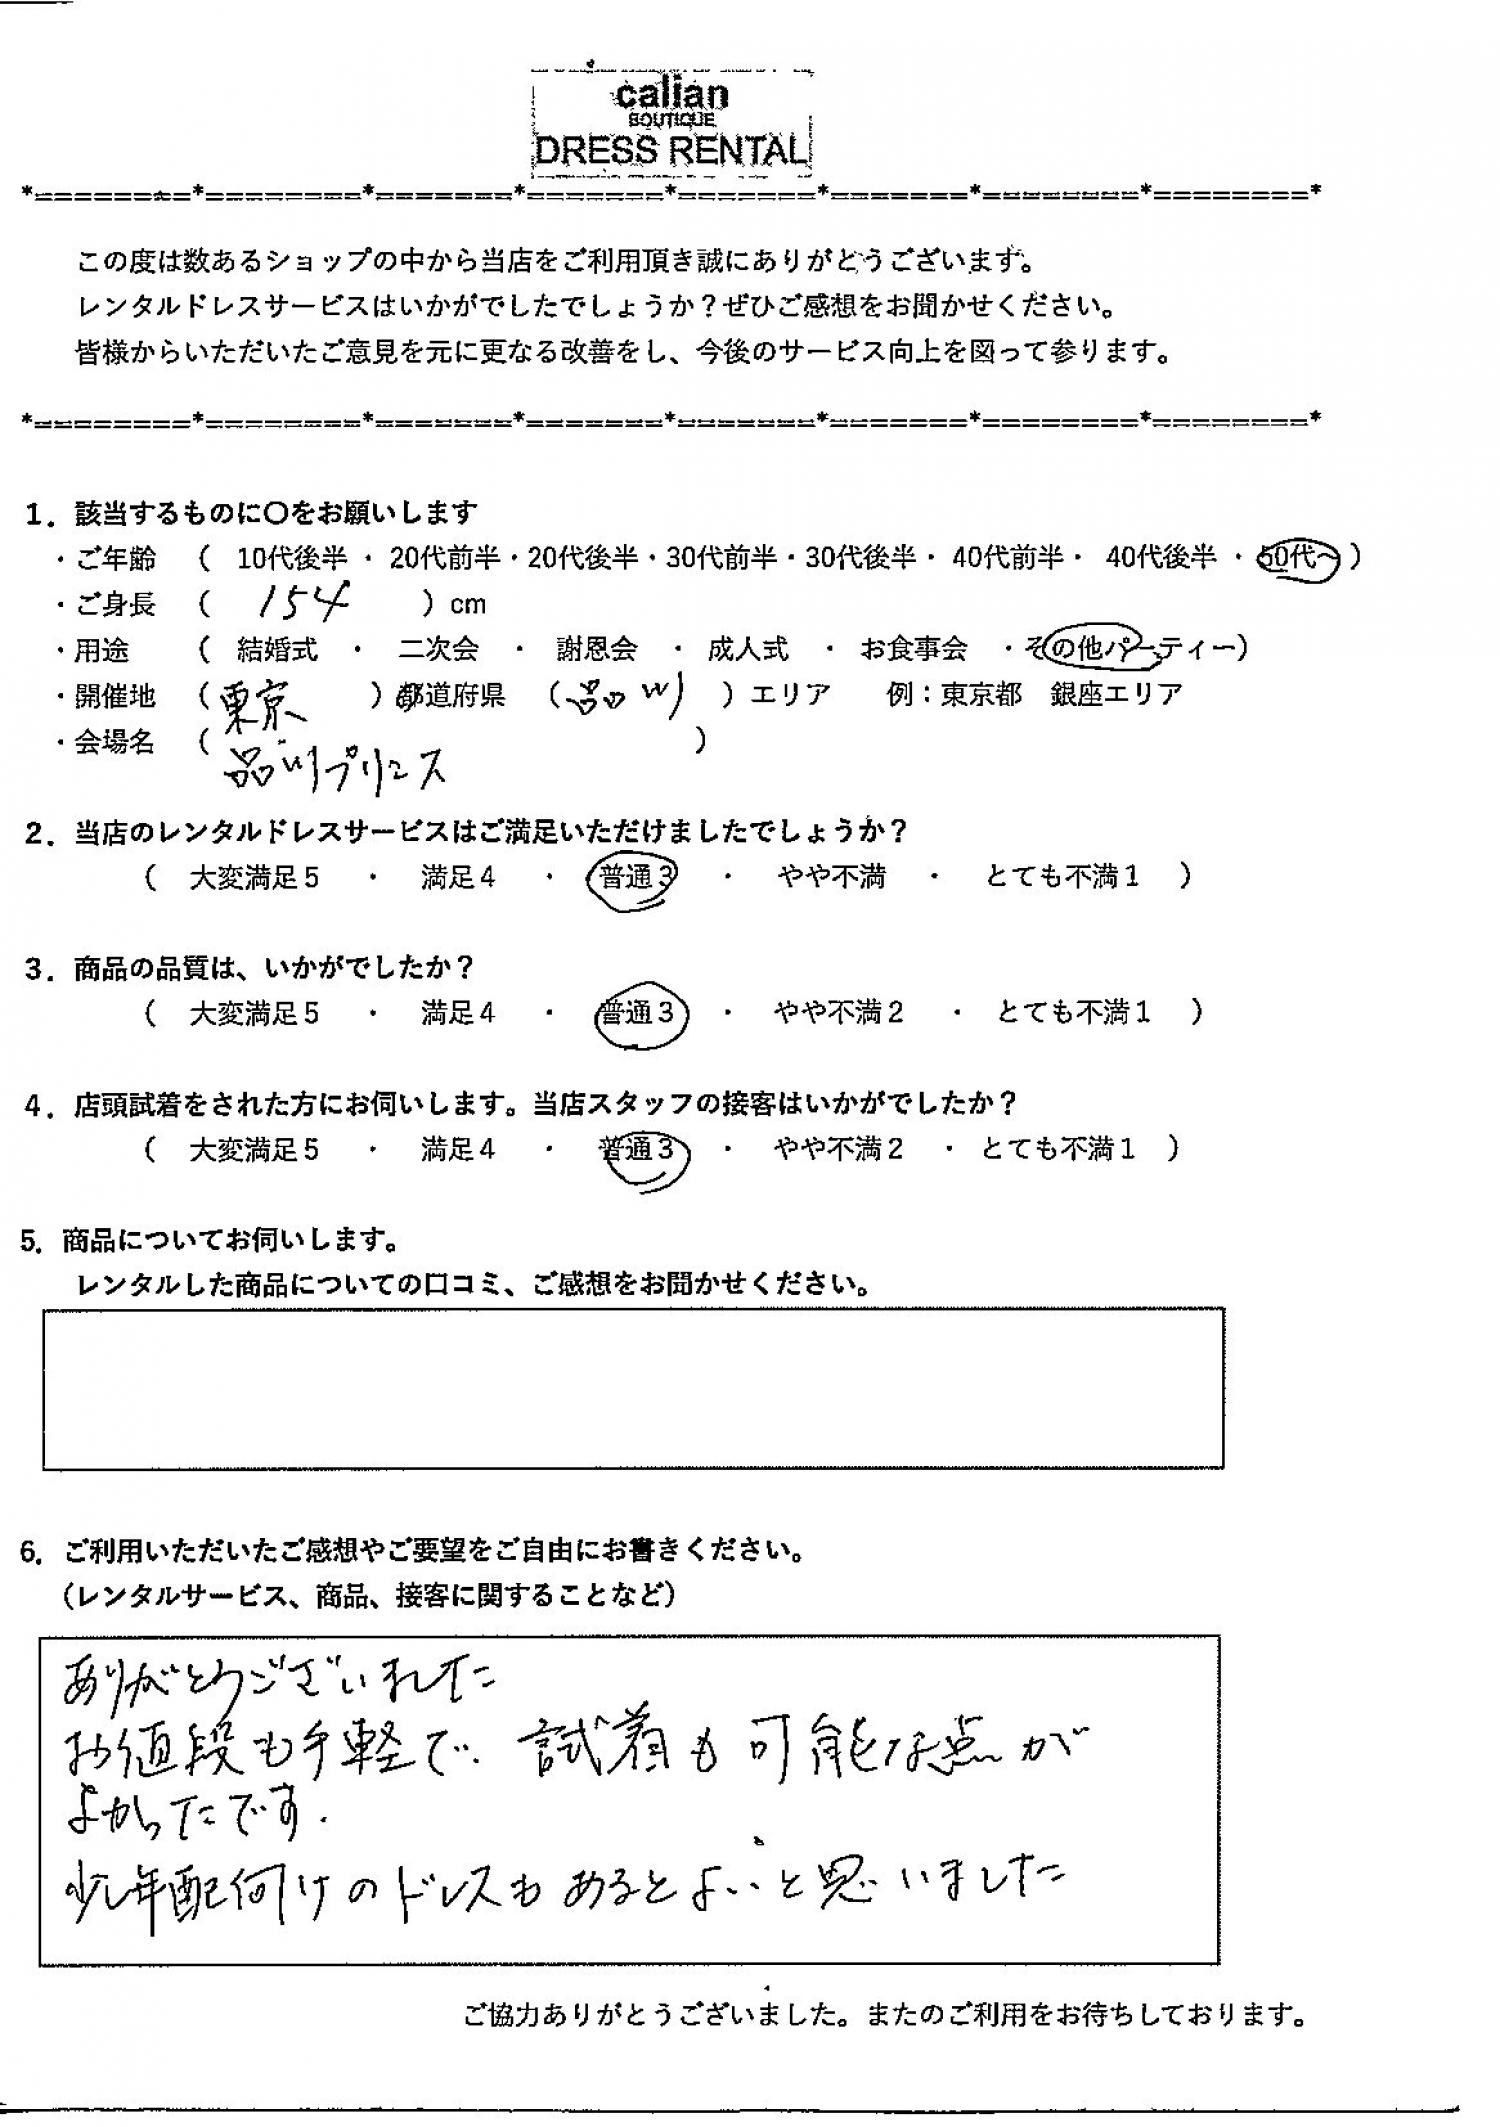 calian
BOUTIQUE
DRESS RENTAL
*========*========*=======*=======*=======*=======*========*========*
この度は数あるショップの中から当店をご利用頂き誠にありがとうございます。
レンタルドレスサービスはいかがでしたでしょうか？ぜひご感想をお聞かせください。
皆様からいただいたご意見を元に更なる改善をし、今後のサービス向上を図って参ります。
*========*========*=======*=======*=======*=======*========*========*
1．該当するものに〇をお願いします
・ご年齢 （ 10代後半・20代前半・20代後半・30代前半・30代後半・40代前半・40代後半・50代～）
・ご身長 （ 154 ）cm
・用途 （ 結婚式 ・ 二次会 ・ 謝恩会 ・ 成人式 ・ お食事会 ・その他パーティー）
・開催地 （東京 ）都道府県 （品川 ）エリア 例：東京都 銀座エリア
・会場名 （品川プリンス ）
2．当店のレンタルドレスサービスはご満足いただけましたでしょうか？
（ 大変満足５ ・ 満足４ ・ 普通３ ・ やや不満 ・ とても不満１ ）
3．商品の品質は、いかがでしたか？
（ 大変満足５ ・ 満足４ ・ 普通３ ・ やや不満２ ・ とても不満１ ）
4．店頭試着をされた方にお伺いします。当店スタッフの接客はいかがでしたか？
（ 大変満足５ ・ 満足４ ・ 普通３ ・ やや不満２ ・とても不満１ ）
5．商品についてお伺いします。
レンタルした商品についての口コミ、ご感想をお聞かせください。
6．ご利用いただいたご感想やご要望をご自由にお書きください。
（レンタルサービス、商品、接客に関することなど）
ありがとうございました
お値段も手軽で、試着も可能な点が
よかったです．
少し年配向けのドレスもあるとよいと思いました
ご協力ありがとうございました。またのご利用をお待ちしております。